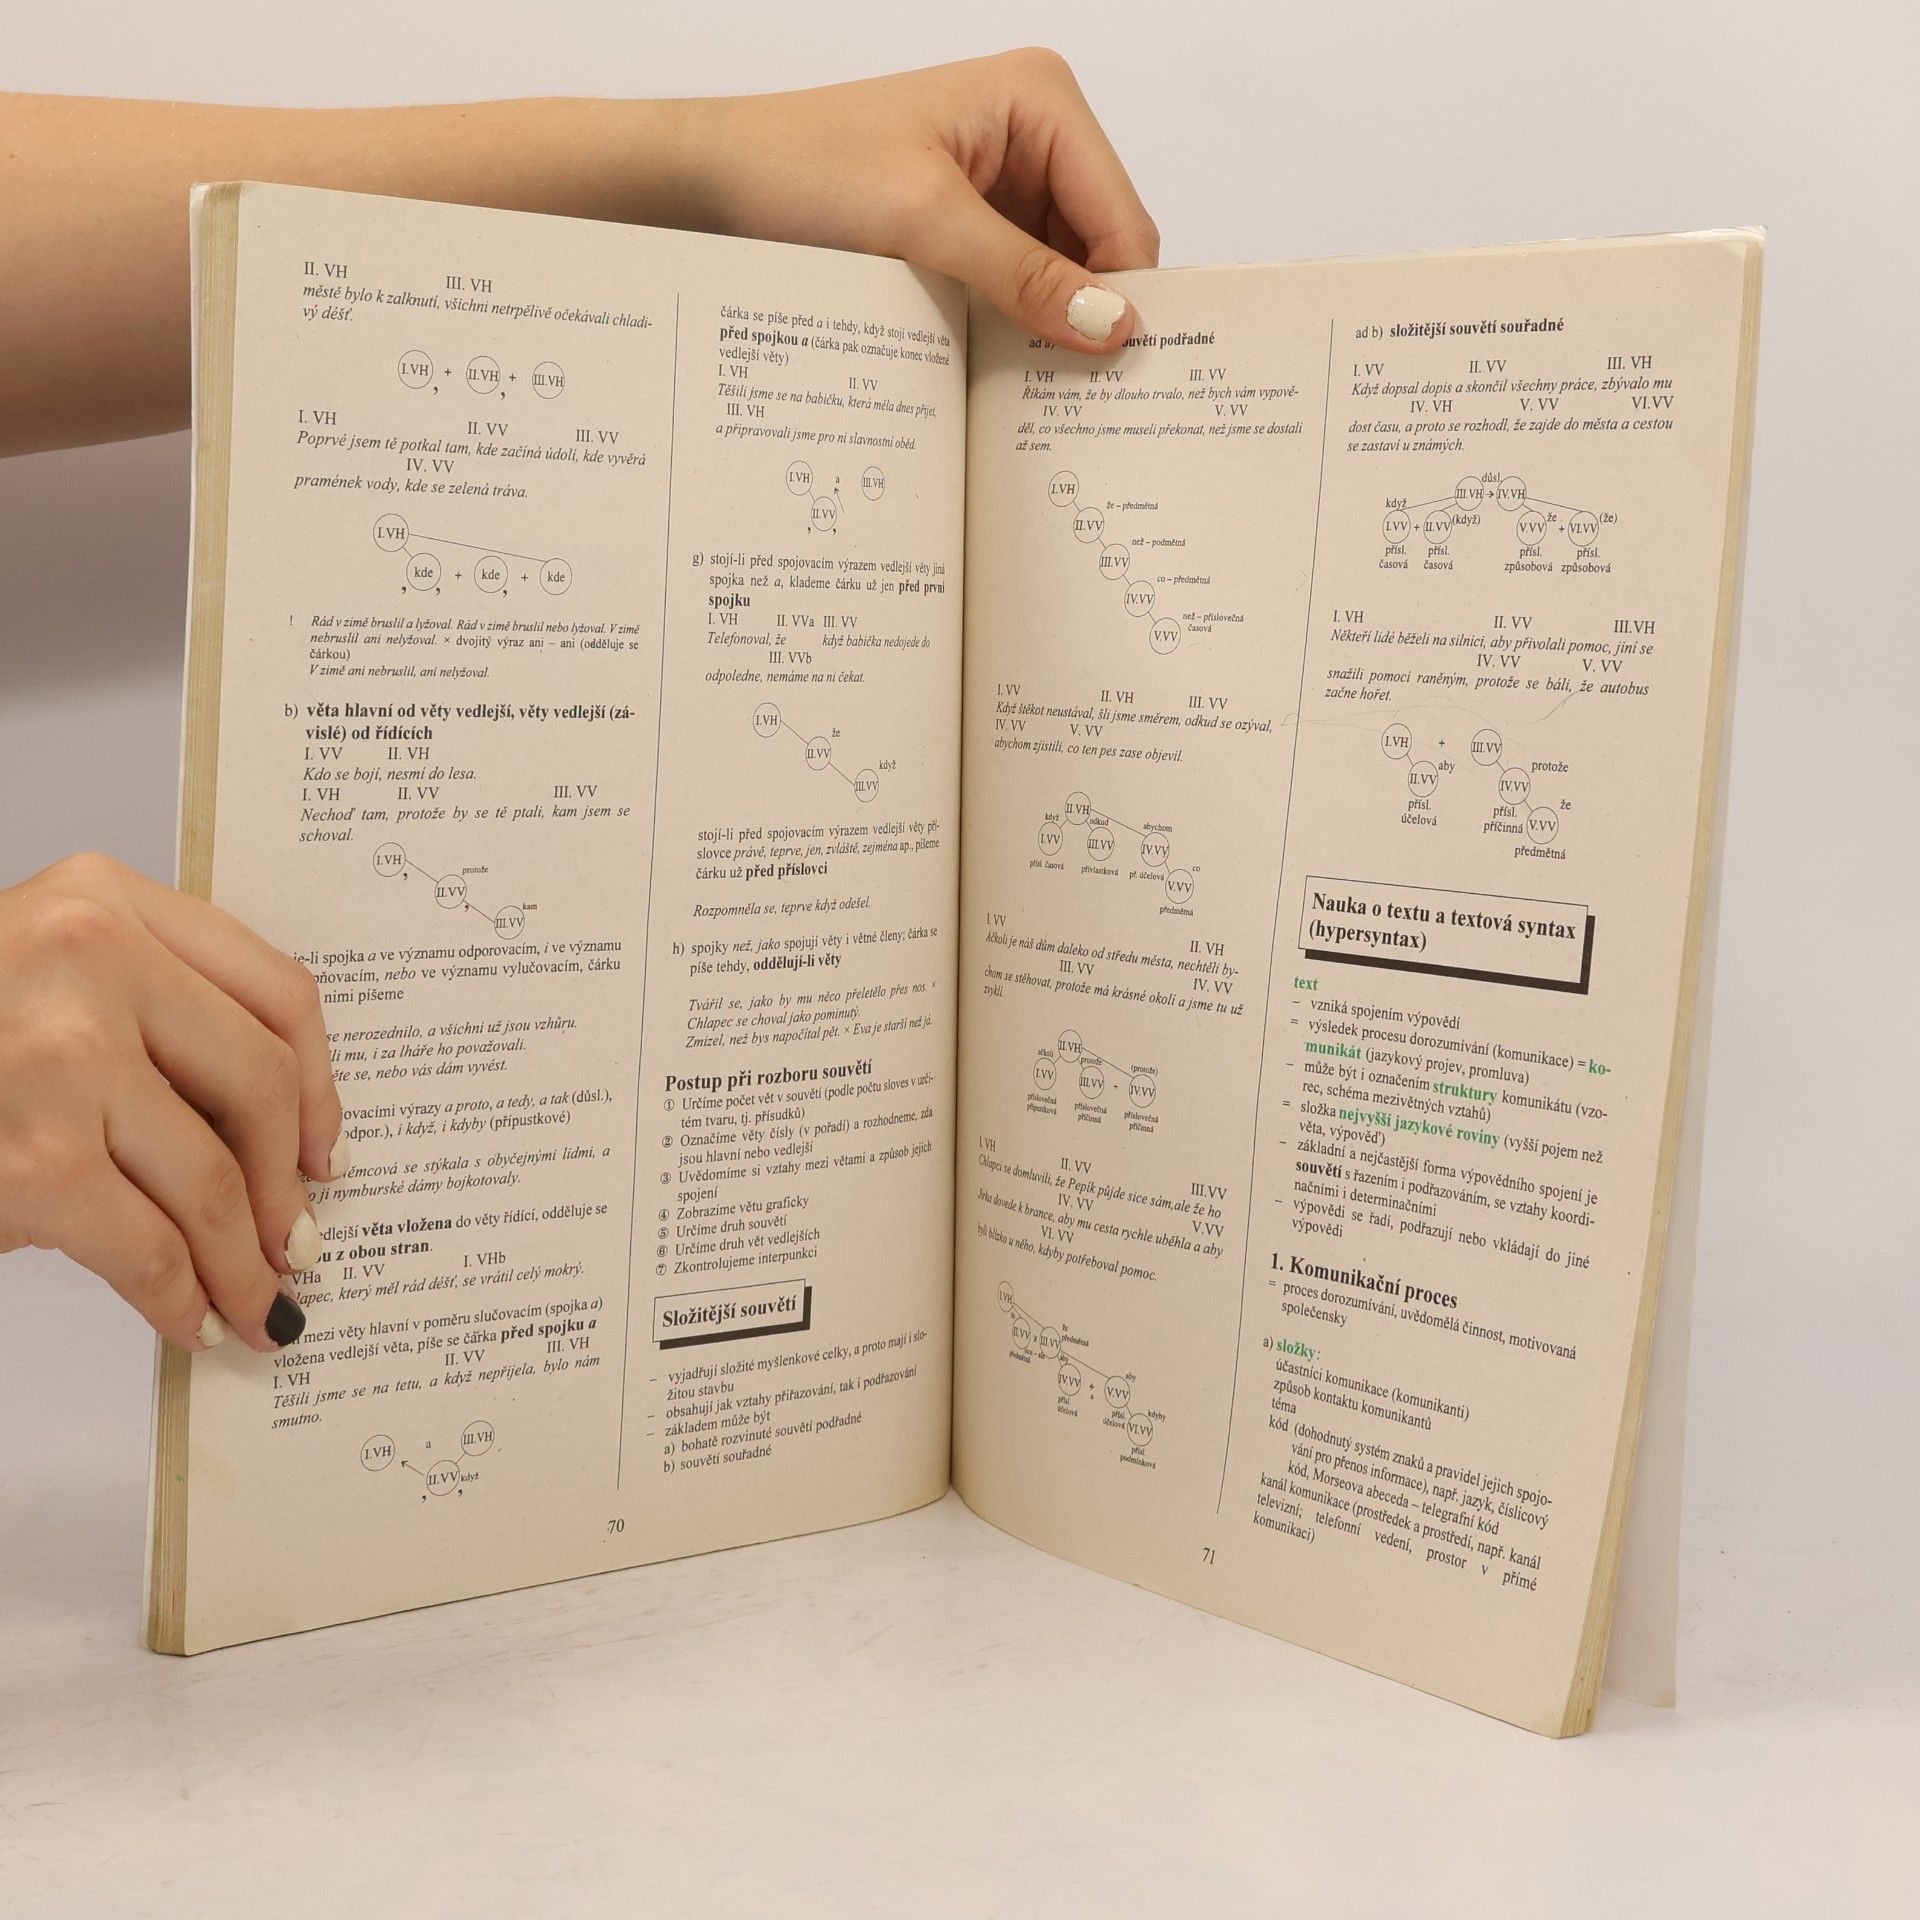 II. VH III. VH
městě bylo k zalknutí, všichni netrpělivě očekávali chladi-
vý déšť.
I.VH , + II.VH , + III.VH
I. VH II. VV III. VV
Poprvé jsem tě potkal tam, kde začíná údolí, kde vyvěrá
IV. VV
pramének vody, kde se zelená tráva.
I.VH
, kde , + kde , + kde
! Rád v zimě bruslil a lyžoval. Rád v zimě bruslil nebo lyžoval. V zimě
nebruslil ani nelyžoval. × dvojitý výraz ani – ani (odděluje se
čárkou)
V zimě ani nebruslil, ani nelyžoval.
b) věta hlavní od věty vedlejší, věty vedlejší (zá-
vislé) od řídících
I. VV II. VH
Kdo se bojí, nesmí do lesa.
I. VH II. VV III. VV
Nechoď tam, protože by se tě ptali, kam jsem se
schoval.
I.VH ,
protože
II.VV ,
kam
III.VV
je-li spojka a ve významu odporovacím, i ve významu
pňovacím, nebo ve významu vylučovacím, čárku
nimi píšeme
se nerozednilo, a všichni už jsou vzhůru.
li mu, i za lháře ho považovali.
ěte se, nebo vás dám vyvést.
jovacími výrazy a proto, a tedy, a tak (důsl.),
odpor.), i když, i kdyby (přípustkové)
ěmcová se stýkala s obyčejnými lidmi, a
o ji nymburské dámy bojkotovaly.
edlejší věta vložena do věty řídící, odděluje se
ou z obou stran.
VHa II. VV I. VHb
lapec, který měl rád déšť, se vrátil celý mokrý.
mezi věty hlavní v poměru slučovacím (spojka a)
vložena vedlejší věta, píše se čárka před spojku a
I. VH II. VV III. VH
Těšili jsme se na tetu, a když nepřijela, bylo nám
smutno.
I.VH a III.VH
, II.VV , když
70
čárka se píše před a i tehdy, když stojí vedlejší věta
před spojkou a (čárka pak označuje konec vložené
vedlejší věty)
I. VH II. VV
Těšili jsme se na babičku, která měla dnes přijet,
III. VH
a připravovali jsme pro ni slavnostní oběd.
I.VH a III.VH
, II.VV ,
g) stojí-li před spojovacím výrazem vedlejší věty jiná
spojka než a, klademe čárku už jen před první
spojku
I. VH II. VVa III. VV
Telefonoval, že když babička nedojede do
III. VVb
odpoledne, nemáme na ni čekat.
I.VH
že
II.VV
když
III.VV
stojí-li před spojovacím výrazem vedlejší věty pří-
slovce právě, teprve, jen, zvláště, zejména ap., píšeme
čárku už před příslovci
Rozpomněla se, teprve když odešel.
h) spojky než, jako spojují věty i větné členy; čárka se
píše tehdy, oddělují-li věty
Tvářil se, jako by mu něco přeletělo přes nos. ×
Chlapec se choval jako pominutý.
Zmizel, než bys napočítal pět. × Eva je starší než já.
Postup při rozboru souvětí
① Určíme počet vět v souvětí (podle počtu sloves v urči-
tém tvaru, tj. přísudků)
② Označíme věty čísly (v pořadí) a rozhodneme, zda
jsou hlavní nebo vedlejší
③ Uvědomíme si vztahy mezi větami a způsob jejich
spojení
④ Zobrazíme větu graficky
⑤ Určíme druh souvětí
⑥ Určíme druh vět vedlejších
⑦ Zkontrolujeme interpunkci
Složitější souvětí
– vyjadřují složité myšlenkové celky, a proto mají i slo-
žitou stavbu
– obsahují jak vztahy přiřazování, tak i podřazování
– základem může být
a) bohatě rozvinuté souvětí podřadné
b) souvětí souřadné
ad a) ouvětí podřadné
I. VH II. VV III. VV
Říkám vám, že by dlouho trvalo, než bych vám vypově-
IV. VV V. VV
děl, co všechno jsme museli překonat, než jsme se dostali
až sem.
I.VH
že – předmětná
II.VV
než – podmětná
III.VV
co – předmětná
IV.VV
než – příslovečná
časová
V.VV
I. VV II. VH III. VV
Když štěkot neustával, šli jsme směrem, odkud se ozýval,
IV. VV V. VV
abychom zjistili, co ten pes zase objevil.
II.VH
když odkud abychom
I.VV III.VV IV.VV
přísl. časová přívlastková př. účelová
co
V.VV
předmětná
I. VV II. VH
Ačkoli je náš dům daleko od středu města, nechtěli by-
III. VV IV. VV
chom se stěhovat, protože má krásné okolí a jsme tu už
zvyklí.
II.VH
ačkoli protože (protože)
I.VV III.VV + IV.VV
příslovečná přípustková
příslovečná příčinná
příslovečná příčinná
I. VH II. VV III.VV
Chlapci se domluvili, že Pepík půjde sice sám,ale že ho
IV. VV V.VV
Jirka dovede k brance, aby mu cesta rychle uběhla a aby
VI. VV
byli blízko u něho, kdyby potřeboval pomoc.
I.VH
že že
II.VV × III.VV předmětná
předmětná sice – ale
aby aby
IV.VV + V.VV
a
přísl. účelová přísl. účelová
kdyby
VI.VV
přísl.
podmínková
71
ad b) složitější souvětí souřadné
I. VV II. VV III. VH
Když dopsal dopis a skončil všechny práce, zbývalo mu
IV. VH V. VV VI.VV
dost času, a proto se rozhodl, že zajde do města a cestou
se zastaví u známých.
důsl.
III.VH → IV.VH
když (když) že (že)
I.VV + II.VV V.VV + VI.VV
přísl. přísl. přísl. přísl.
časová časová způsobová způsobová
I. VH II. VV III.VH
Někteří lidé běželi na silnici, aby přivolali pomoc, jiní se
IV. VV V. VV
snažili pomoci raněným, protože se báli, že autobus
začne hořet.
I.VH + III.VV
aby protože
II.VV IV.VV
přísl. přísl. že
účelová příčinná V.VV
předmětná
Nauka o textu a textová syntax
(hypersyntax)
text
– vzniká spojením výpovědí
= výsledek procesu dorozumívání (komunikace) = ko-
munikát (jazykový projev, promluva)
– může být i označením struktury komunikátu (vzo-
rec, schéma mezivětných vztahů)
= složka nejvyšší jazykové roviny (vyšší pojem než
věta, výpověď)
– základní a nejčastější forma výpovědního spojení je
souvětí s řazením i podřazováním, se vztahy koordi-
načními i determinačními
– výpovědi se řadí, podřazují nebo vkládají do jiné
výpovědi
1. Komunikační proces
= proces dorozumívání, uvědomělá činnost, motivovaná
společensky
a) složky:
účastníci komunikace (komunikanti)
způsob kontaktu komunikantů
téma
kód (dohodnutý systém znaků a pravidel jejich spojo-
vání pro přenos informace), např. jazyk, číslicový
kód, Morseova abeceda – telegrafní kód
kanál komunikace (prostředek a prostředí, např. kanál
televizní; telefonní vedení, prostor v přímé
komunikaci)